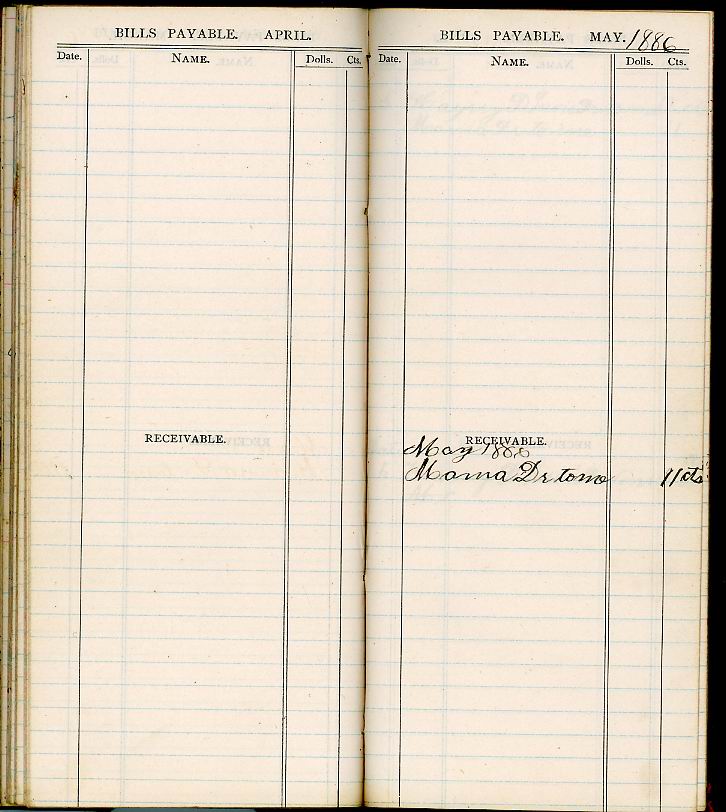 BILLS PAYABLE. APRIL.
Date. NAME. Dolls. Cts.
RECEIVABLE.
BILLS PAYABLE. MAY. 1886
Date. NAME. Dolls. Cts.
RECEIVABLE.
May 1886
Mama Dr to me 11 cts